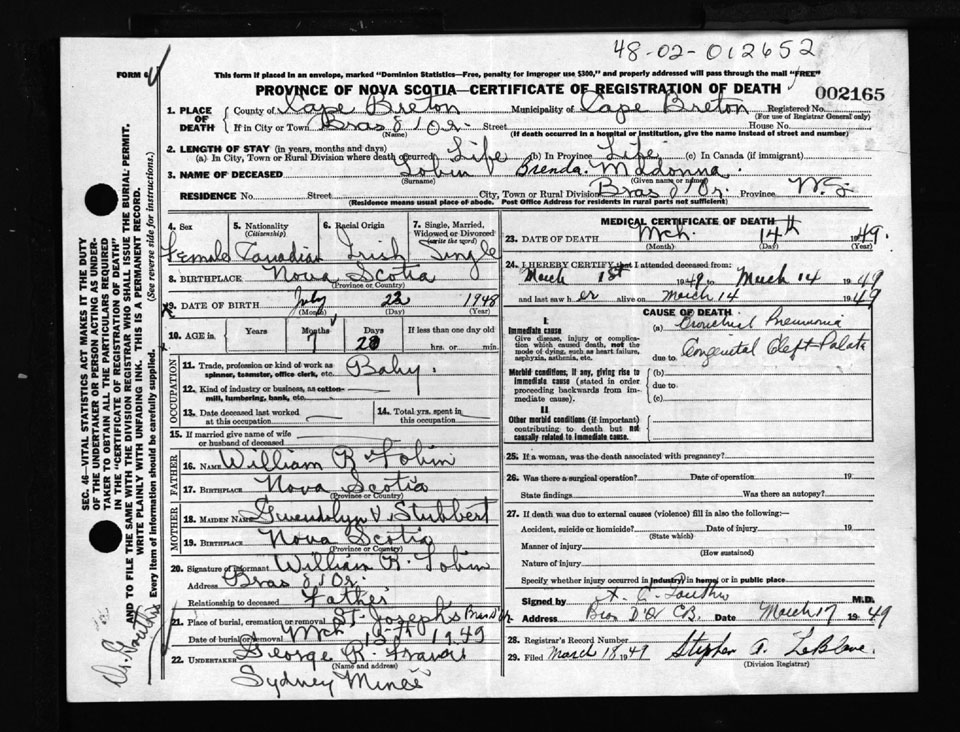 48-02-012652
FORM 6
This form if placed in an envelope, marked "Dominion Statistics—Free, penalty for improper use $300," and properly addressed will pass through the mail "FREE"
PROVINCE OF NOVA SCOTIA—CERTIFICATE OF REGISTRATION OF DEATH
002165
1. PLACE OF DEATH County of Cape Breton Municipality of Cape Breton Registered No.
(For use of Registrar General only)
If in City or Town Bras d'Or Street House No.
(Name) (If death occurred in a hospital or institution, give the name instead of street and number)
2. LENGTH OF STAY (in years, months and days)
(a) In City, Town or Rural Division where death occurred Life (b) In Province Life (c) In Canada (if immigrant)
3. NAME OF DECEASED Tobin Brenda Madonna
(Surname) (Given name or names)
RESIDENCE No. Street City, Town or Rural Division Bras d'Or Province N.S.
(Residence means usual place of abode. Post Office Address for residents in rural parts not sufficient)
4. Sex 5. Nationality (Citizenship) 6. Racial Origin 7. Single, Married, Widowed or Divorced (write the word)
Female Canadian Irish Single
8. BIRTHPLACE Nova Scotia
(Province or Country)
9. DATE OF BIRTH July 22 1948
(Month) (Day) (Year)
10. AGE in Years Months Days If less than one day old
7 20 hrs. or min.
OCCUPATION
11. Trade, profession or kind of work as spinner, teamster, office clerk, etc. Baby.
12. Kind of industry or business, as cotton-mill, lumbering, bank, etc.
13. Date deceased last worked at this occupation 14. Total yrs. spent in this occupation
15. If married give name of wife or husband of deceased
FATHER
16. NAME William R Tobin
17. BIRTHPLACE Nova Scotia
(Province or Country)
MOTHER
18. MAIDEN NAME Gwendolyn V. Stubbert
19. BIRTHPLACE Nova Scotia
(Province or Country)
20. Signature of informant William R. Tobin
Address Bras d'Or.
Relationship to deceased Father
21. Place of burial, cremation or removal St. Joseph's Bras D'Or
Date of burial or removal Mch 1949
22. UNDERTAKER George R. Francis
(Name and address)
Sydney Mines
MEDICAL CERTIFICATE OF DEATH
23. DATE OF DEATH Mch. 14th 1949.
(Month) (Day) (Year)
24. I HEREBY CERTIFY that I attended deceased from:
March 1st 1949 to March 14 1949
and last saw her alive on March 14 1949
CAUSE OF DEATH
I.
Immediate cause
Give disease, injury or complication which caused death, not the mode of dying, such as heart failure, asphyxia, asthenia, etc.
(a) Bronchial Pneumonia
due to Congenital Cleft Palate
Morbid conditions, if any, giving rise to immediate cause (stated in order proceeding backwards from immediate cause).
(b)
due to
(c)
II.
Other morbid conditions (if important) contributing to death but not causally related to immediate cause.
25. If a woman, was the death associated with pregnancy?
26. Was there a surgical operation? Date of operation 19
State findings Was there an autopsy?
27. If death was due to external causes (violence) fill in also the following:—
Accident, suicide or homicide? Date of injury 19
(State which)
Manner of injury
(How sustained)
Nature of injury
Specify whether injury occurred in industry, in home, or in public place
Signed by A. C. M.D.
Address Bras D'Or C.B. Date March 17 1949
28. Registrar's Record Number
29. Filed March 18 1949 Stephen A. LeBlanc.
(Division Registrar)
SEC. 46—VITAL STATISTICS ACT MAKES IT THE DUTY
OF THE UNDERTAKER OR PERSON ACTING AS UNDER-
TAKER TO OBTAIN ALL THE PARTICULARS REQUIRED
IN THE "CERTIFICATE OF REGISTRATION OF DEATH"
AND TO FILE THE SAME WITH THE DIVISION REGISTRAR WHO SHALL ISSUE THE BURIAL PERMIT.
WRITE PLAINLY WITH UNFADING INK. THIS IS A PERMANENT RECORD.
Every item of information should be carefully supplied. (See reverse side for instructions.)